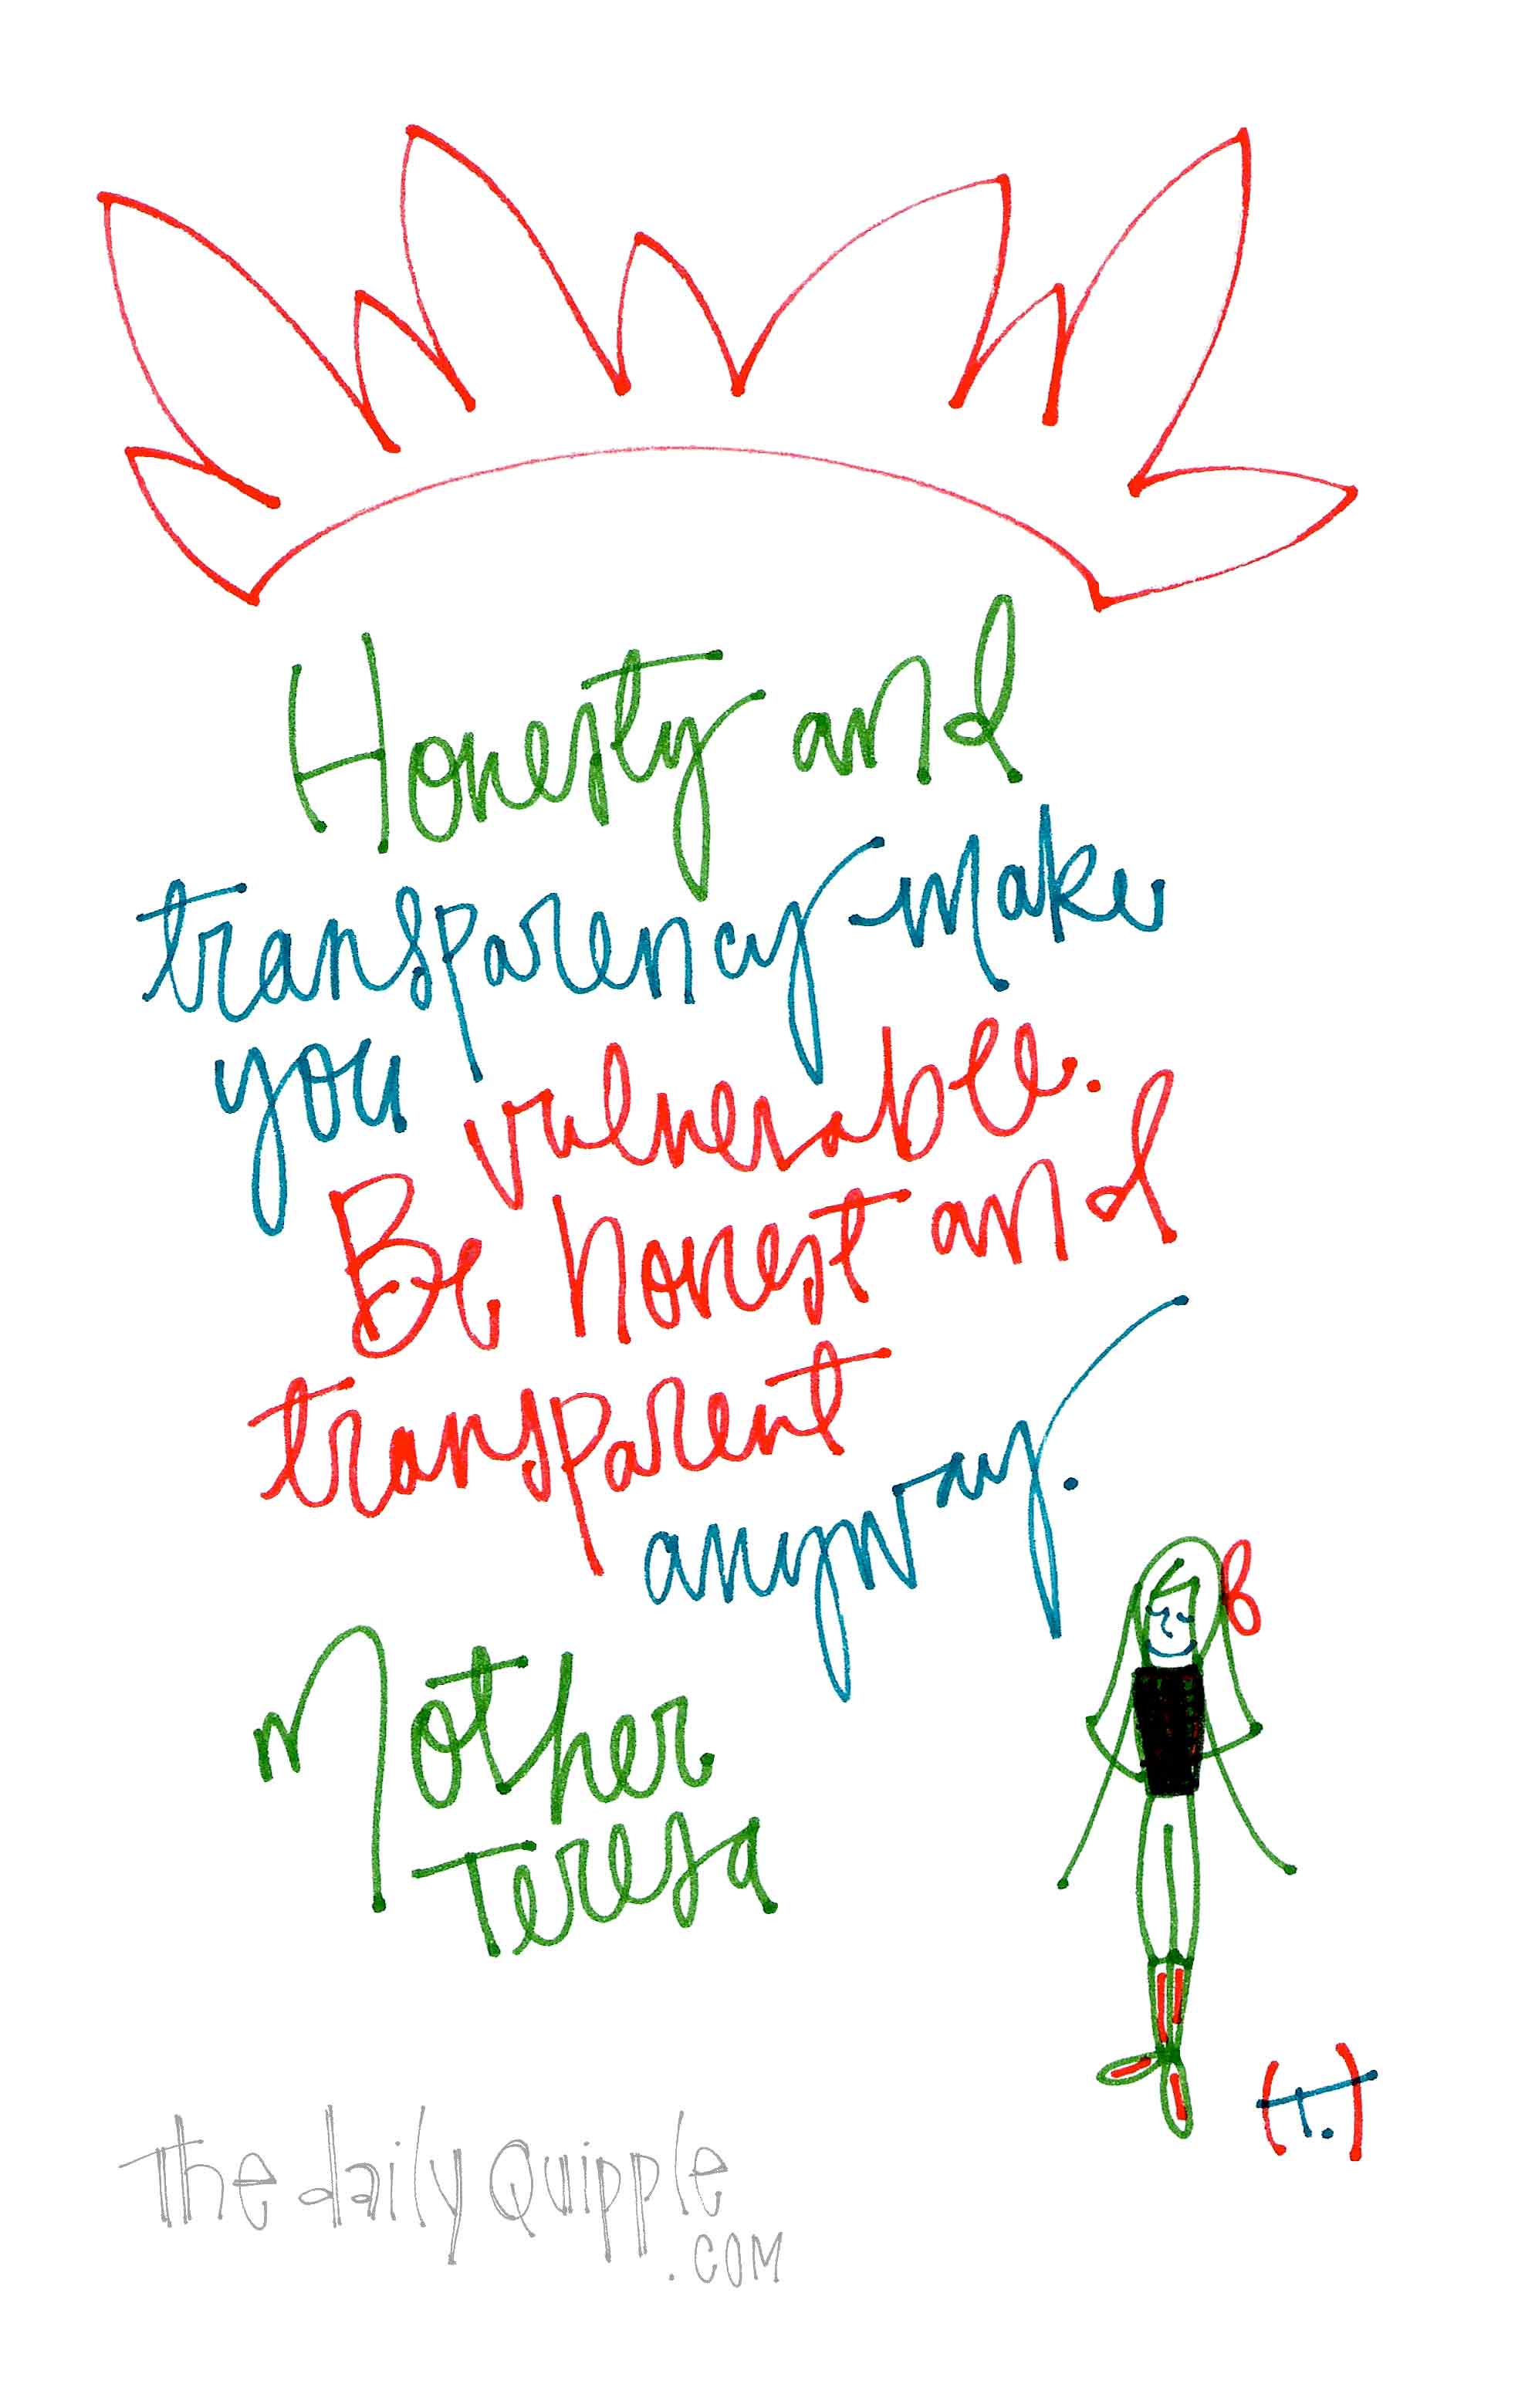 Honesty and
transparency make
you vulnerable.
Be honest and
transparent
anyway.
Mother
Teresa
(t.)
The daily Quipple
.com